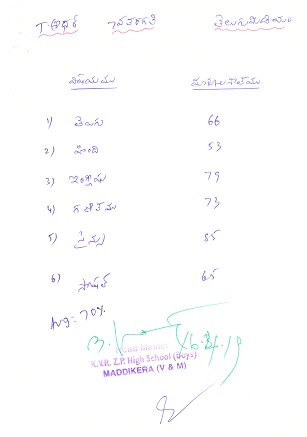 T. శ్రీధర్ 7వ తరగతి తెలుగుమీడియం
విషయము మార్కుల శాతము
1) తెలుగు 66
2) హింది 53
3) ఇంగ్లీషు 79
4) గణితము 73
5) సైన్సు 85
6) సోషల్ 65
Avg = 70%
Head Master
K.V.R. Z.P. High School (Boys)
MADDIKERA (V & M)